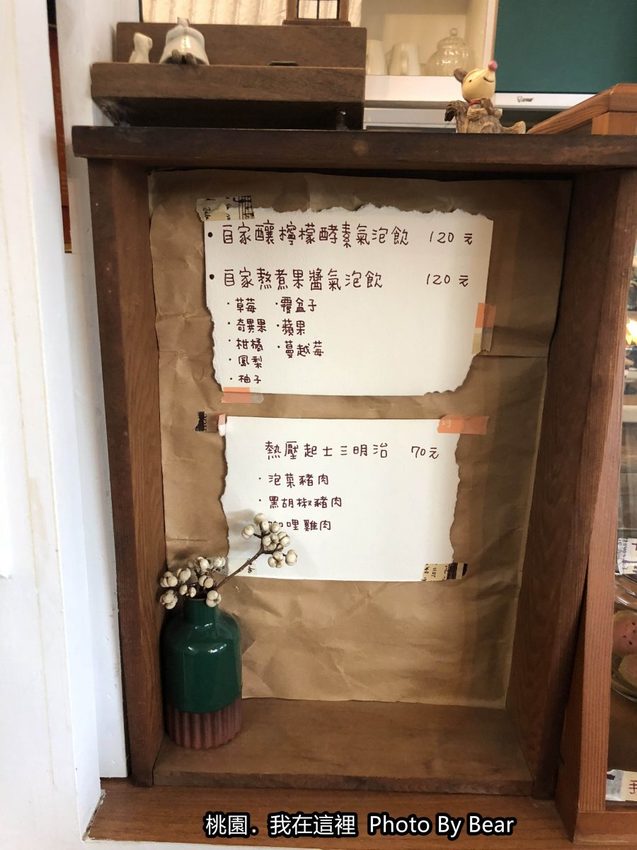 •自家釀檸檬酵素氣泡飲 120元
•自家熬煮果醬氣泡飲 120元
·草莓 ·覆盆子
·奇異果 ·蘋果
·柑橘 ·蔓越莓
·鳳梨
·柚子
熱壓起士三明治 70元
·泡菜豬肉
·黑胡椒豬肉
哩雞肉
桃園. 我在這裡 Photo By Bear